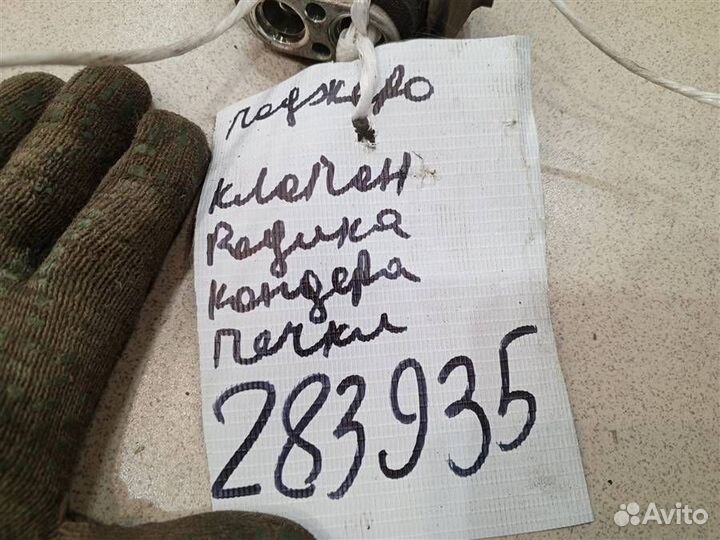 паджеро
клапан
радика
кондера
печки
283935
Avito